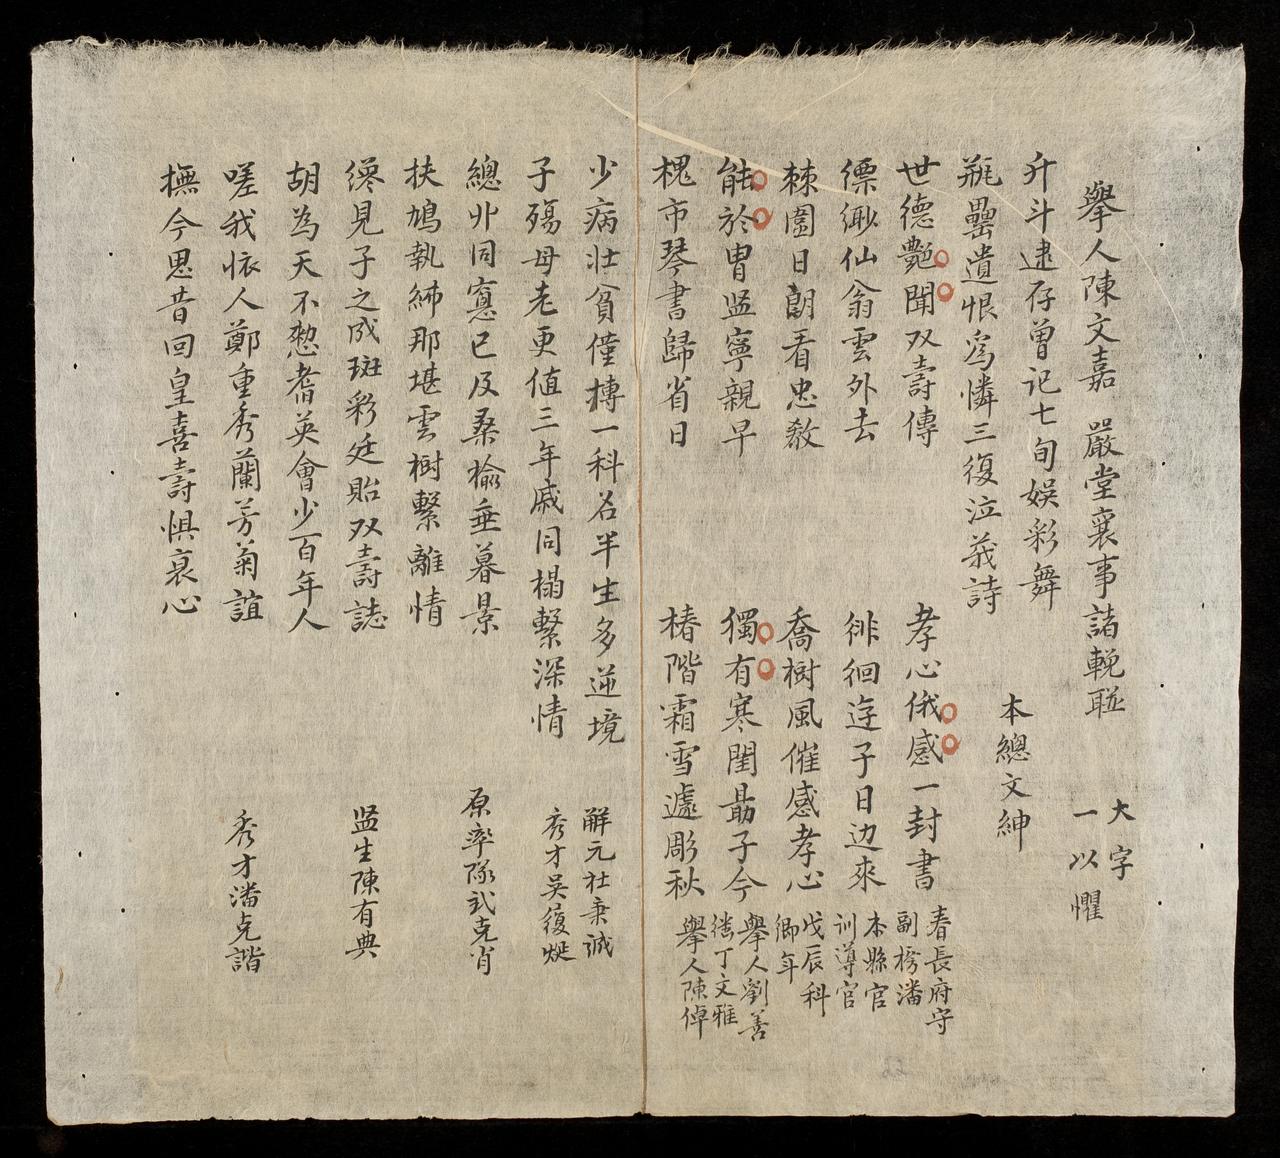 舉人陳文嘉 嚴堂襄事諸輓聯 大字一以懼
升斗逮存曾記七旬娱彩舞
瓶罍遺恨爲憐三復泣莪詩 本總文紳
世德艶聞双壽傳 孝心俄感一封書 春長府守副榜潘
縹緲仙翁雲外去 徘徊遊子日边來 本縣官訓導官
棘圍日朗看忠教 喬樹風催感孝心 戊辰科鄉年
能於胄监寧親早 獨有寒閨勗子今 舉人劉善 丁文雅
槐市琴書歸省日 椿階霜雪遽彫秋 舉人陳倬
少病壯貧僅摶一科名半生多逆境
子殤母老更值三年戚同榻繫深情 解元杜秉誠 秀才吳復烻
總丱同窓已及桑榆垂暮景
扶鳩執紼那堪雲樹繫離情 原率隊武克肖
纔見子之成斑彩廷貽双壽誌
胡為天不憖耆英會少百年人 监生陳有典
嗟我懷人鄭重秀蘭芳菊誼
撫今思昔回皇喜壽惧哀心 秀才潘克諧